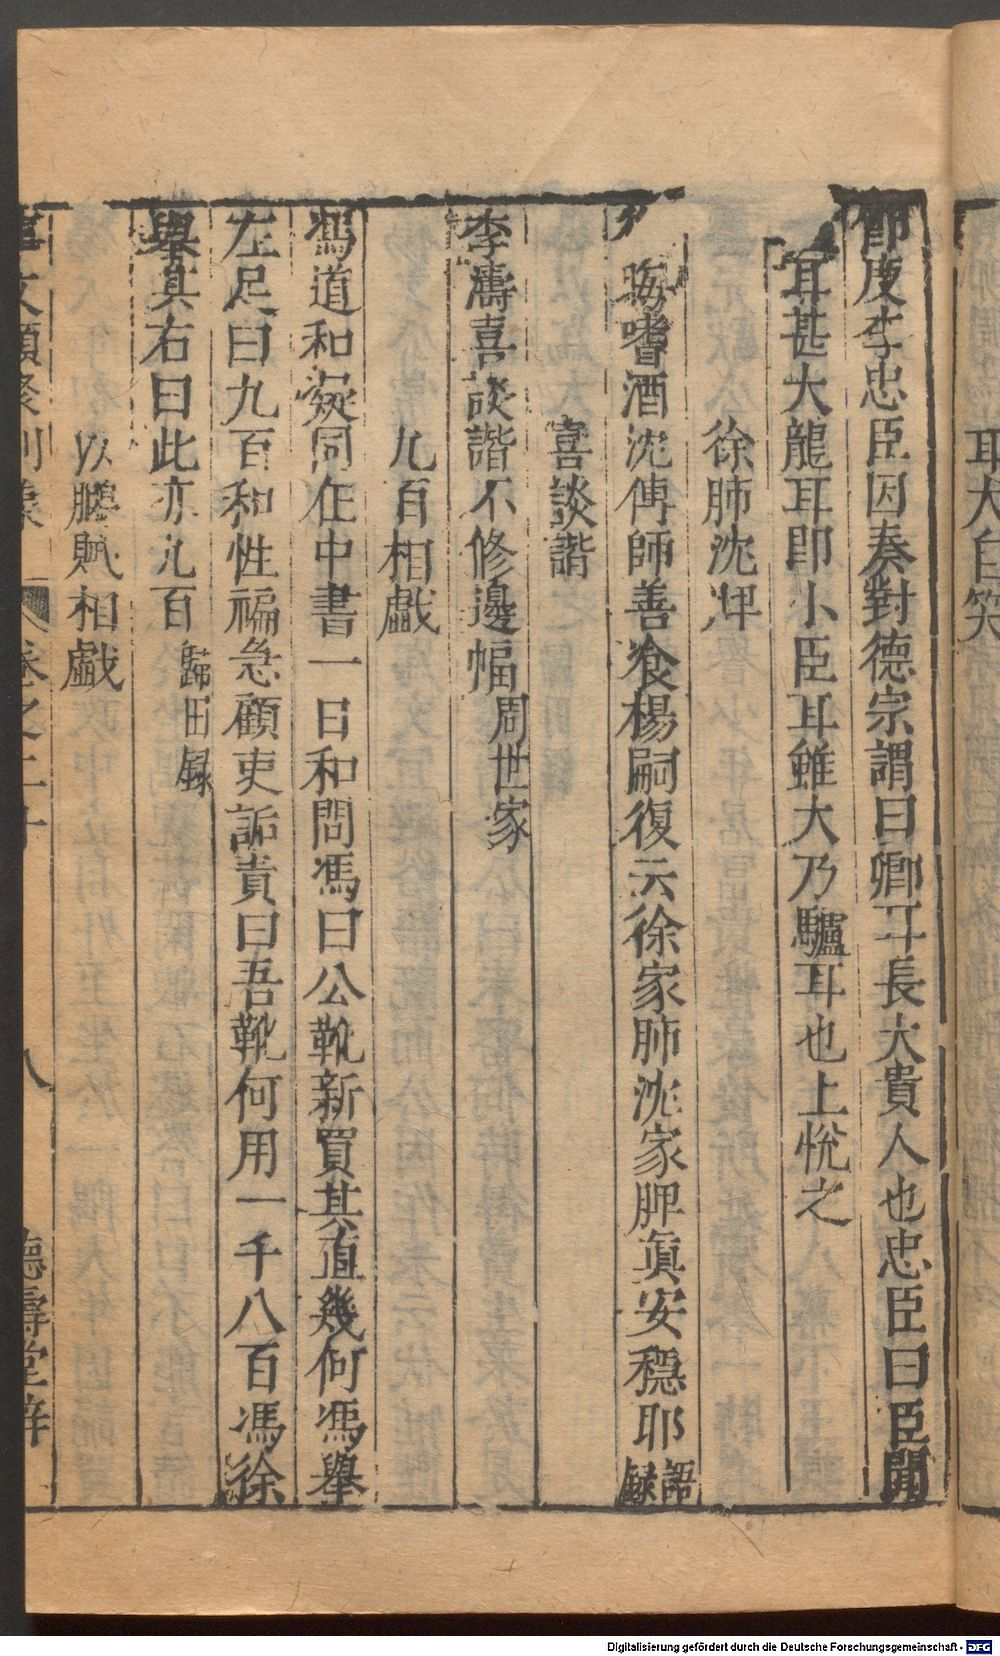 耳大自笑
節度李忠臣因奏對德宗謂曰卿耳長大貴人也忠臣曰臣聞
耳甚大龍耳即小臣耳雖大乃驢耳也上悅之
徐肺沈脾
晦嗜酒沈傳師善飡楊嗣復云徐家肺沈家脾眞安穩耶
語錄
喜談諧
李濤喜談諧不修邊幅周世家
九百相戲
馮道和凝同在中書一日和問馮曰公靴新買其直幾何馮舉
左足曰九百和性褊急顧吏詬責曰吾靴何用一千八百馮徐
舉其右曰此亦九百歸田録
以鵬賦相戲
事文類聚別集 卷之二十 八 德壽堂梓
Digitalisierung gefördert durch die Deutsche Forschungsgemeinschaft - DFG